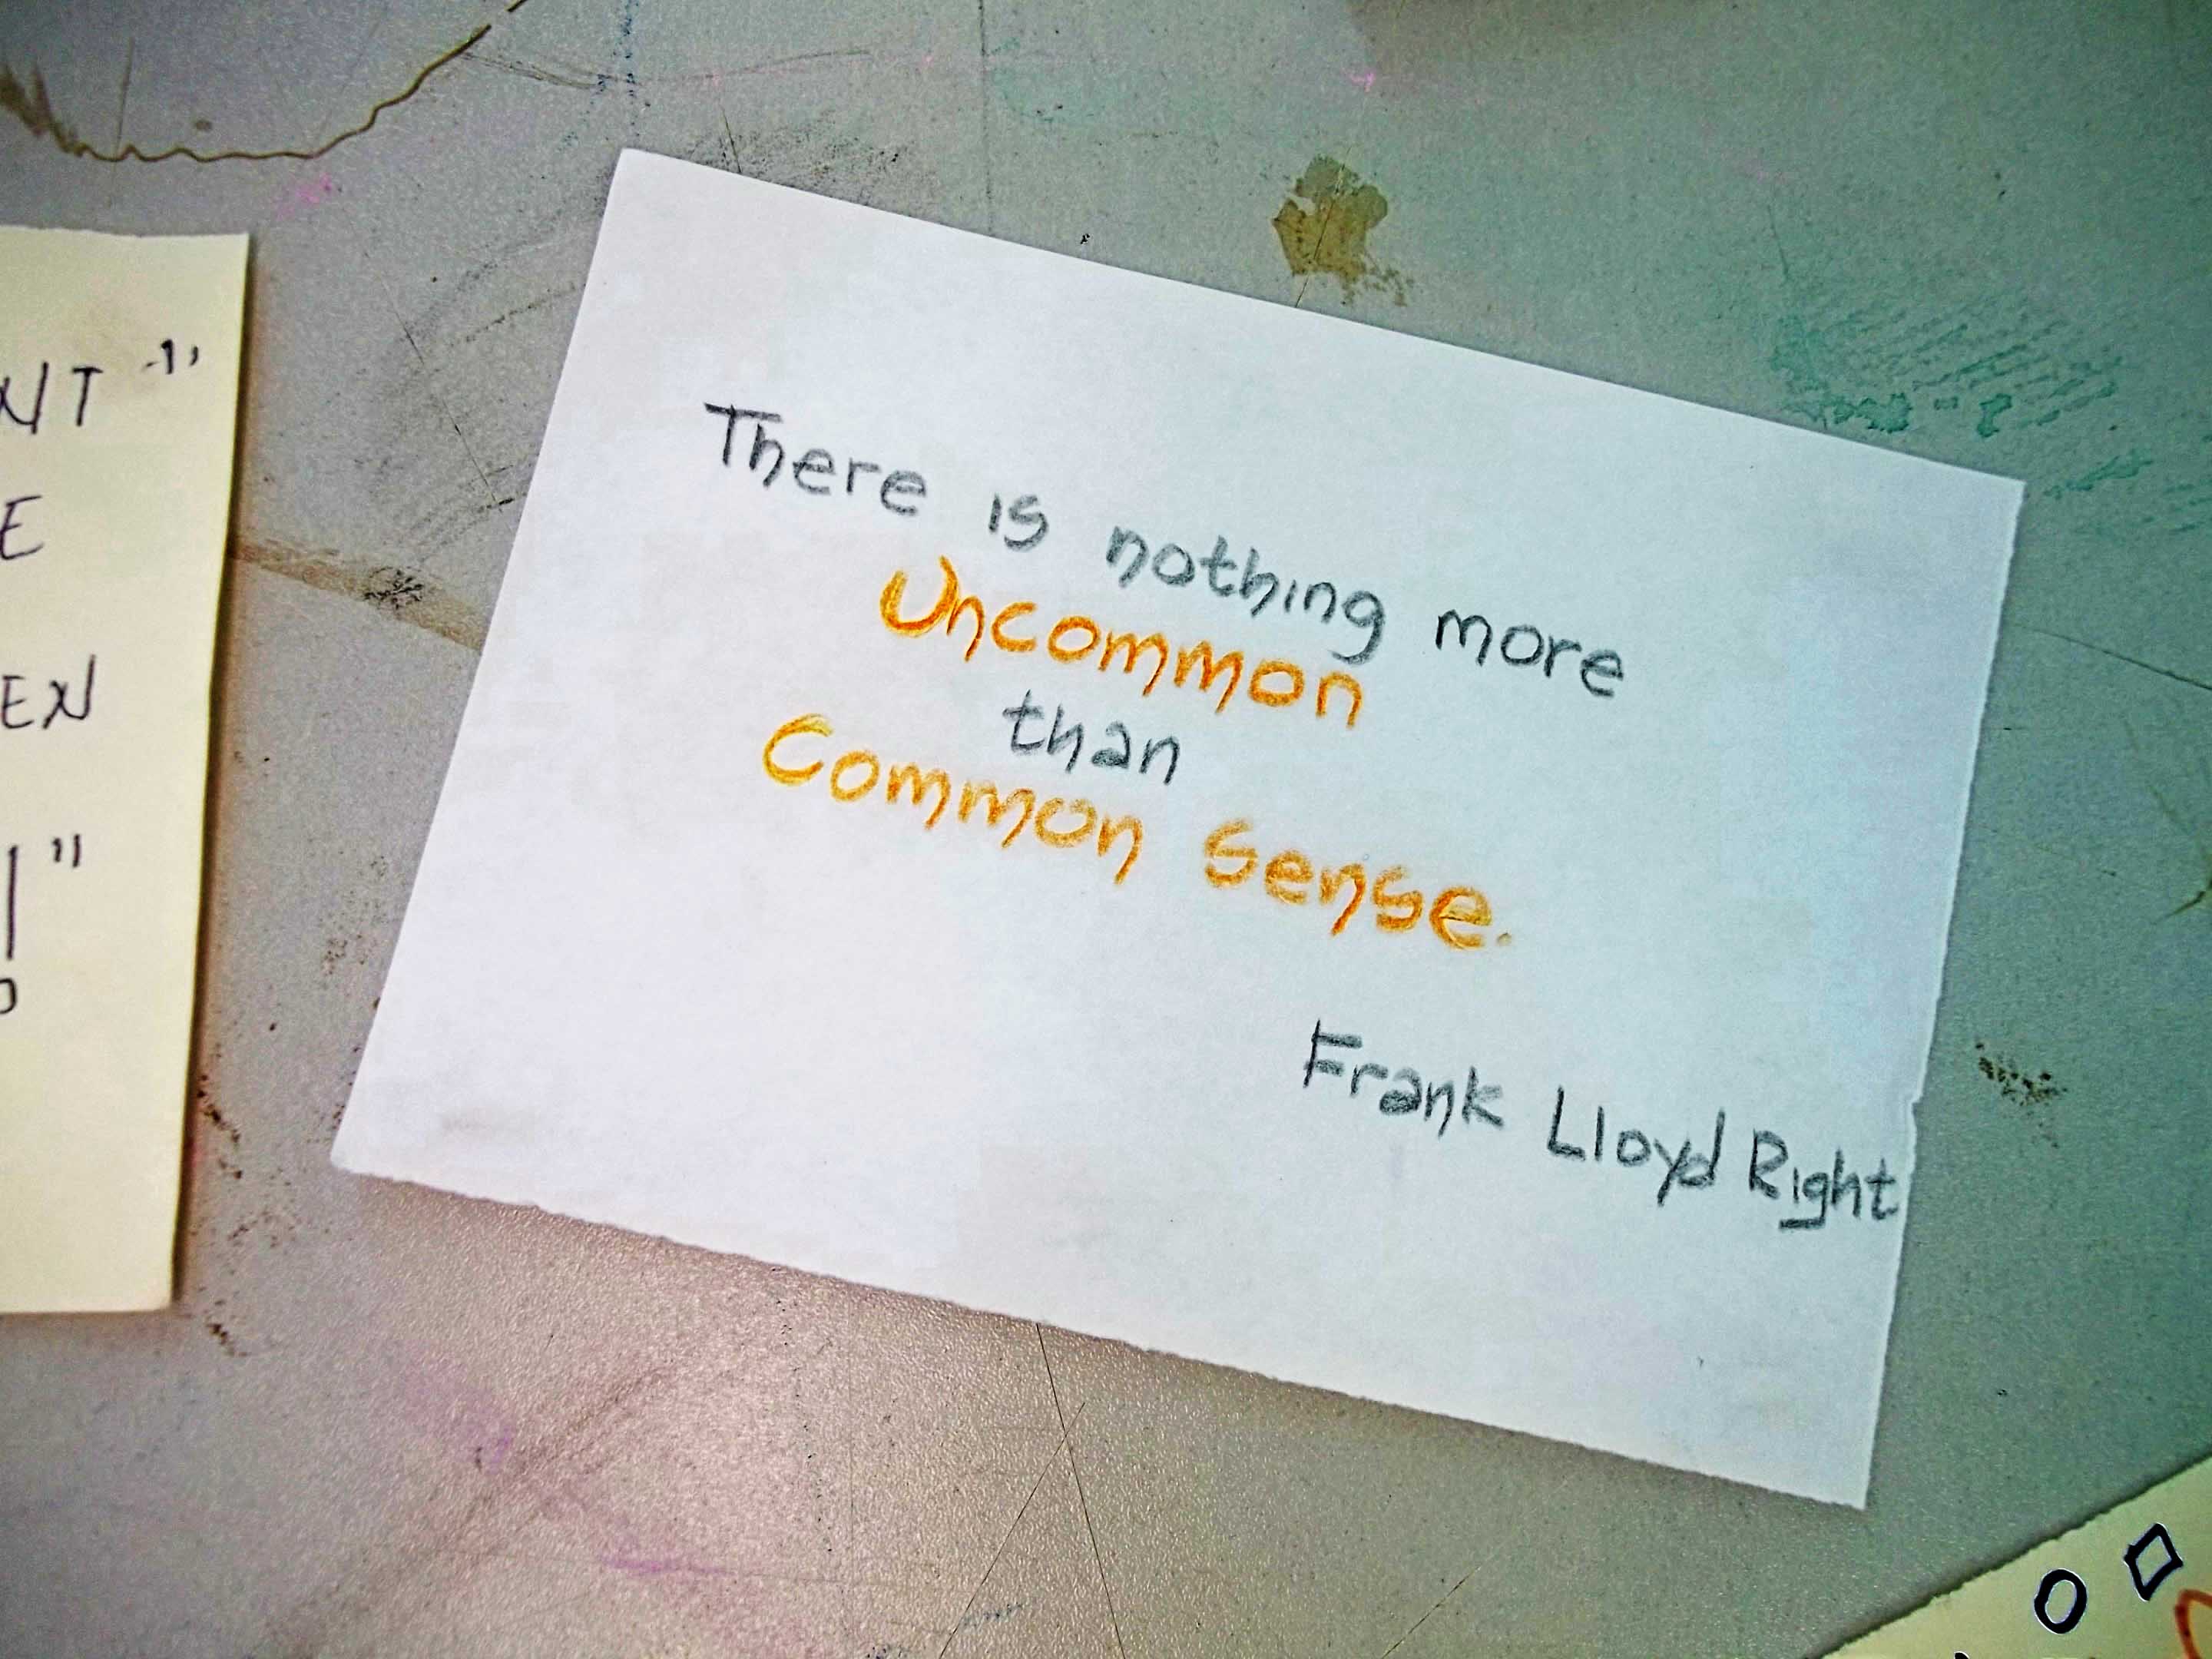 There is nothing more
Uncommon
than
Common Sense.
Frank Lloyd Right
NT"
E
EN